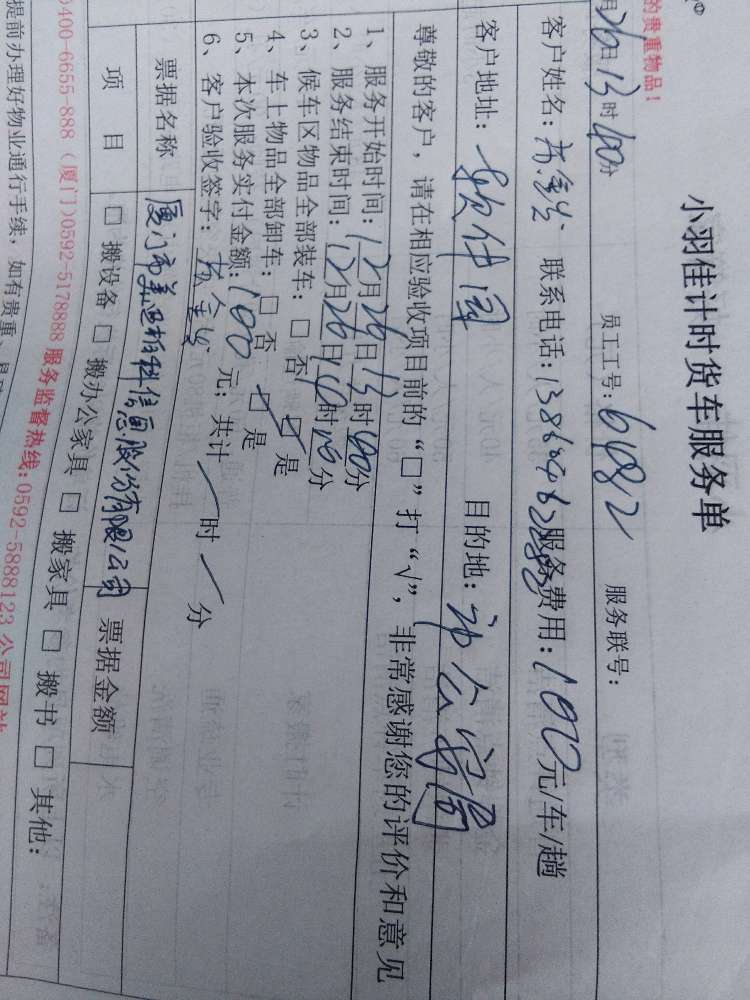 小羽佳计时货车服务单
的贵重物品！
月26日13时40分 员工工号：6082 服务联号：
客户姓名： 联系电话： 服务费用：100元/车/趟
客户地址：软件园 目的地：市公安局
尊敬的客户，请在相应验收项目前的“□”打“√”，非常感谢您的评价和意见
1、服务开始时间：12月26日13时40分
2、服务结束时间：12月26日14时10分
3、候车区物品全部装车：□ 否 ☑ 是
4、车上物品全部卸车：□ 否 ☑ 是
5、本次服务实付金额：100元；共计 / 时 / 分
6、客户验收签字：
票据名称 厦门市美亚柏科信息股份有限公司 票据金额
项 目 □ 搬设备 □ 搬办公家具 □ 搬家具 □ 搬书 □ 其他：
400-6655-888（厦门）0592-5178888 服务监督热线:0592-5888123 公司网站
提前办理好物业通行手续，如有贵重、易